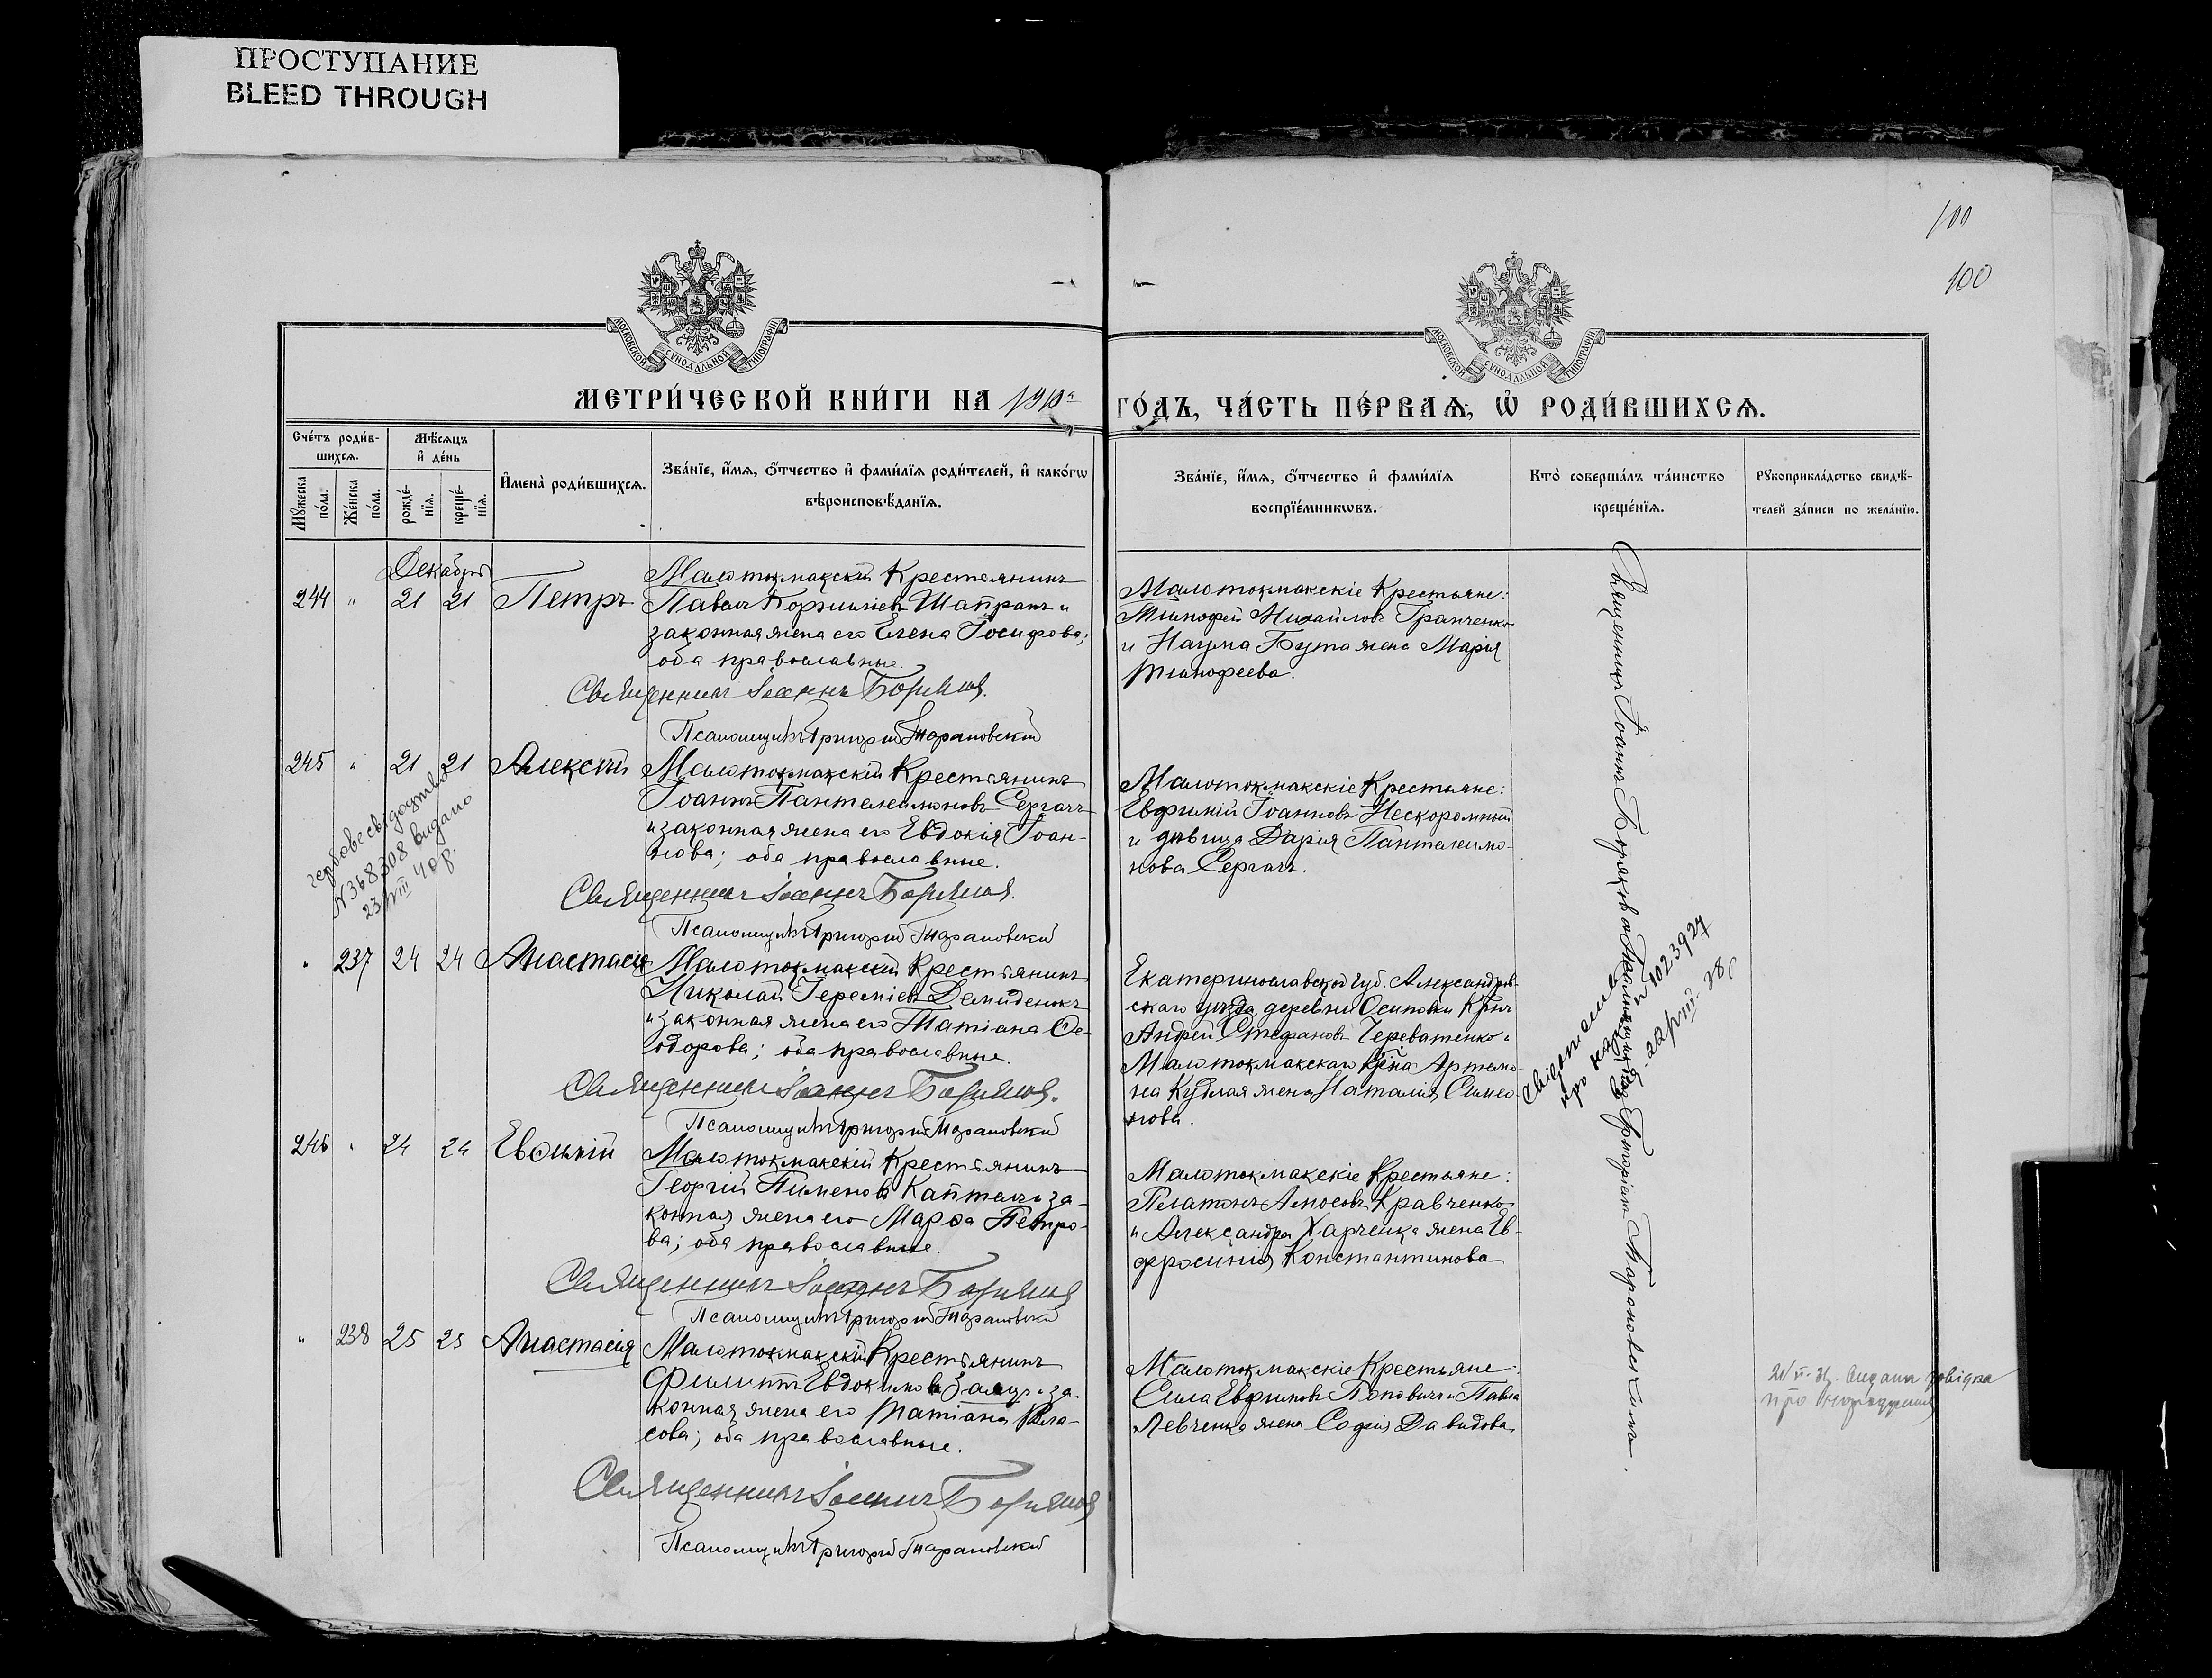 ПРОСТУПАНИЕ
BLEED THROUGH
100
100
МОСКОВСКОЙ СѴНОДАЛЬНОЙ ТИПОГРАФІИ
МОСКОВСКОЙ СѴНОДАЛЬНОЙ ТИПОГРАФІИ
МЕТРИ́ЧЕСКОЙ КНИ́ГИ НА 1910й ГО́ДЪ, ЧА́СТЬ ПЕ́РВАѦ, Ѽ РОДИ́ВШИХСѦ.
Сче́тъ роди́в-
шихсѧ.
Мѣ́сѧцъ
и҆ де́нь
Мꙋ́жеска
по́ла.
Же́нска
по́ла.
рожде́-
нїѧ.
креще́-
нїѧ.
И҆мена̀ роди́вшихсѧ.
Зва́нїе, и҆́мѧ, ѻ҆́тчество и҆ фами́лїѧ роди́телей, и҆ како́гѡ
вѣроисповѣ́данїѧ.
Зва́нїе, и҆́мѧ, ѻ҆́тчество и҆ фами́лїѧ
воспрїе́мникѡвъ.
Кто̀ соверша́лъ та́инство
креще́нїѧ.
Рꙋкоприкла́дство свидѣ́-
телей за́писи по жела́нїю.
Декабрь
244 " 21 21 Петръ
Малотокмакскій Крестьянинъ
Павелъ Корниліевъ Шапранъ и
законная жена его Елена Іосифова;
оба православные.
Священникъ Іоаннъ Боряковъ.
Псаломщикъ Григорій Тарановскій
Малотокмакскіе Крестьяне:
Тимофей Михайловъ Гранченко
и Наума Бута жена Марія
Тимофеева.
245 " 21 21 Алексѣй
Малотокмакскій Крестьянинъ
Іоаннъ Пантелеимоновъ Сергачъ
и законная жена его Евдокія Іоан-
нова; оба православные.
Священникъ Іоаннъ Боряковъ.
Псаломщикъ Григорій Тарановскій
Малотокмакскіе Крестьяне:
Евфимій Іоанновъ Нескоромный
и дѣвица Дарія Пантелеимо-
нова Сергачъ.
N 368308 видано
23/VIII 40 р.
" 237 24 24 Анастасія
Малотокмакскій Крестьянинъ
Николай Іереміевъ Демиденокъ
и законная жена его Татіана Ѳе-
одорова; оба православные.
Священникъ Іоаннъ Боряковъ.
Псаломщикъ Григорій Тарановскій
Екатеринославской губ. Александров-
скаго уѣзда деревни Осиповки Кр-нъ
Андрей Стефановъ Череватенко и
Малотокмакскаго Кр-на Артемо-
на Кудлая жена Наталія Симео-
нова.
246 " 24 24 Евѳимій
Малотокмакскій Крестьянинъ
Георгій Пименовъ Каптелъ и за-
конная жена его Марѳа Петро-
ва; оба православные.
Священникъ Іоаннъ Боряковъ
Псаломщикъ Григорій Тарановскій
Малотокмакскіе Крестьяне:
Платонъ Амосовъ Кравченко
и Александра Харченка жена Ев-
фросинія Константинова
" 238 25 25 Анастасія
Малотокмакскій Крестьянинъ
Филиппъ Евдокимовъ Заяцъ и за-
конная жена его Татіана Вла-
сова; оба православные.
Священникъ Іоаннъ Боряковъ
Псаломщикъ Григорій Тарановскій
Малотокмакскіе Крестьяне:
Сила Евфимовъ Поповичъ и Павла
Левченка жена Софія Давидова.
Священникъ Іоаннъ Боряковъ съ Псаломщикомъ Григоріемъ Тарановскимъ.
1023927
22/VIII 38 р
видана довідка
про народження